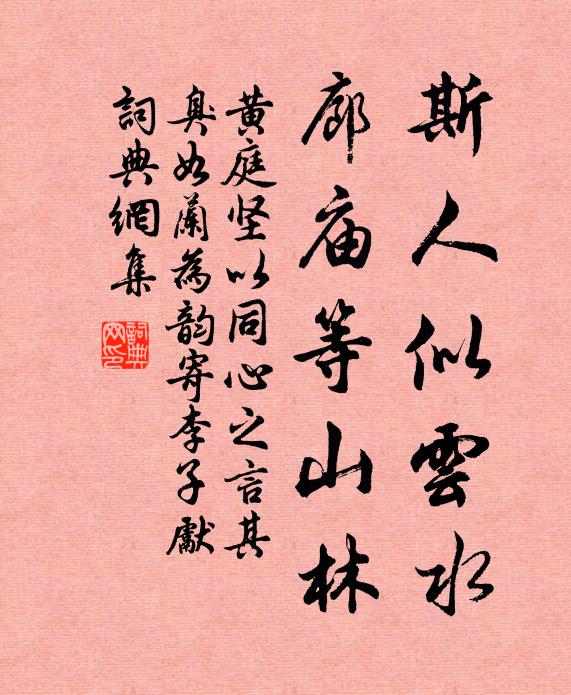 斯人似雲水
廊庙等山林
黄庭坚以同心之言其
臭如蘭為韵寄李子獻
詞典網集
詞典网印